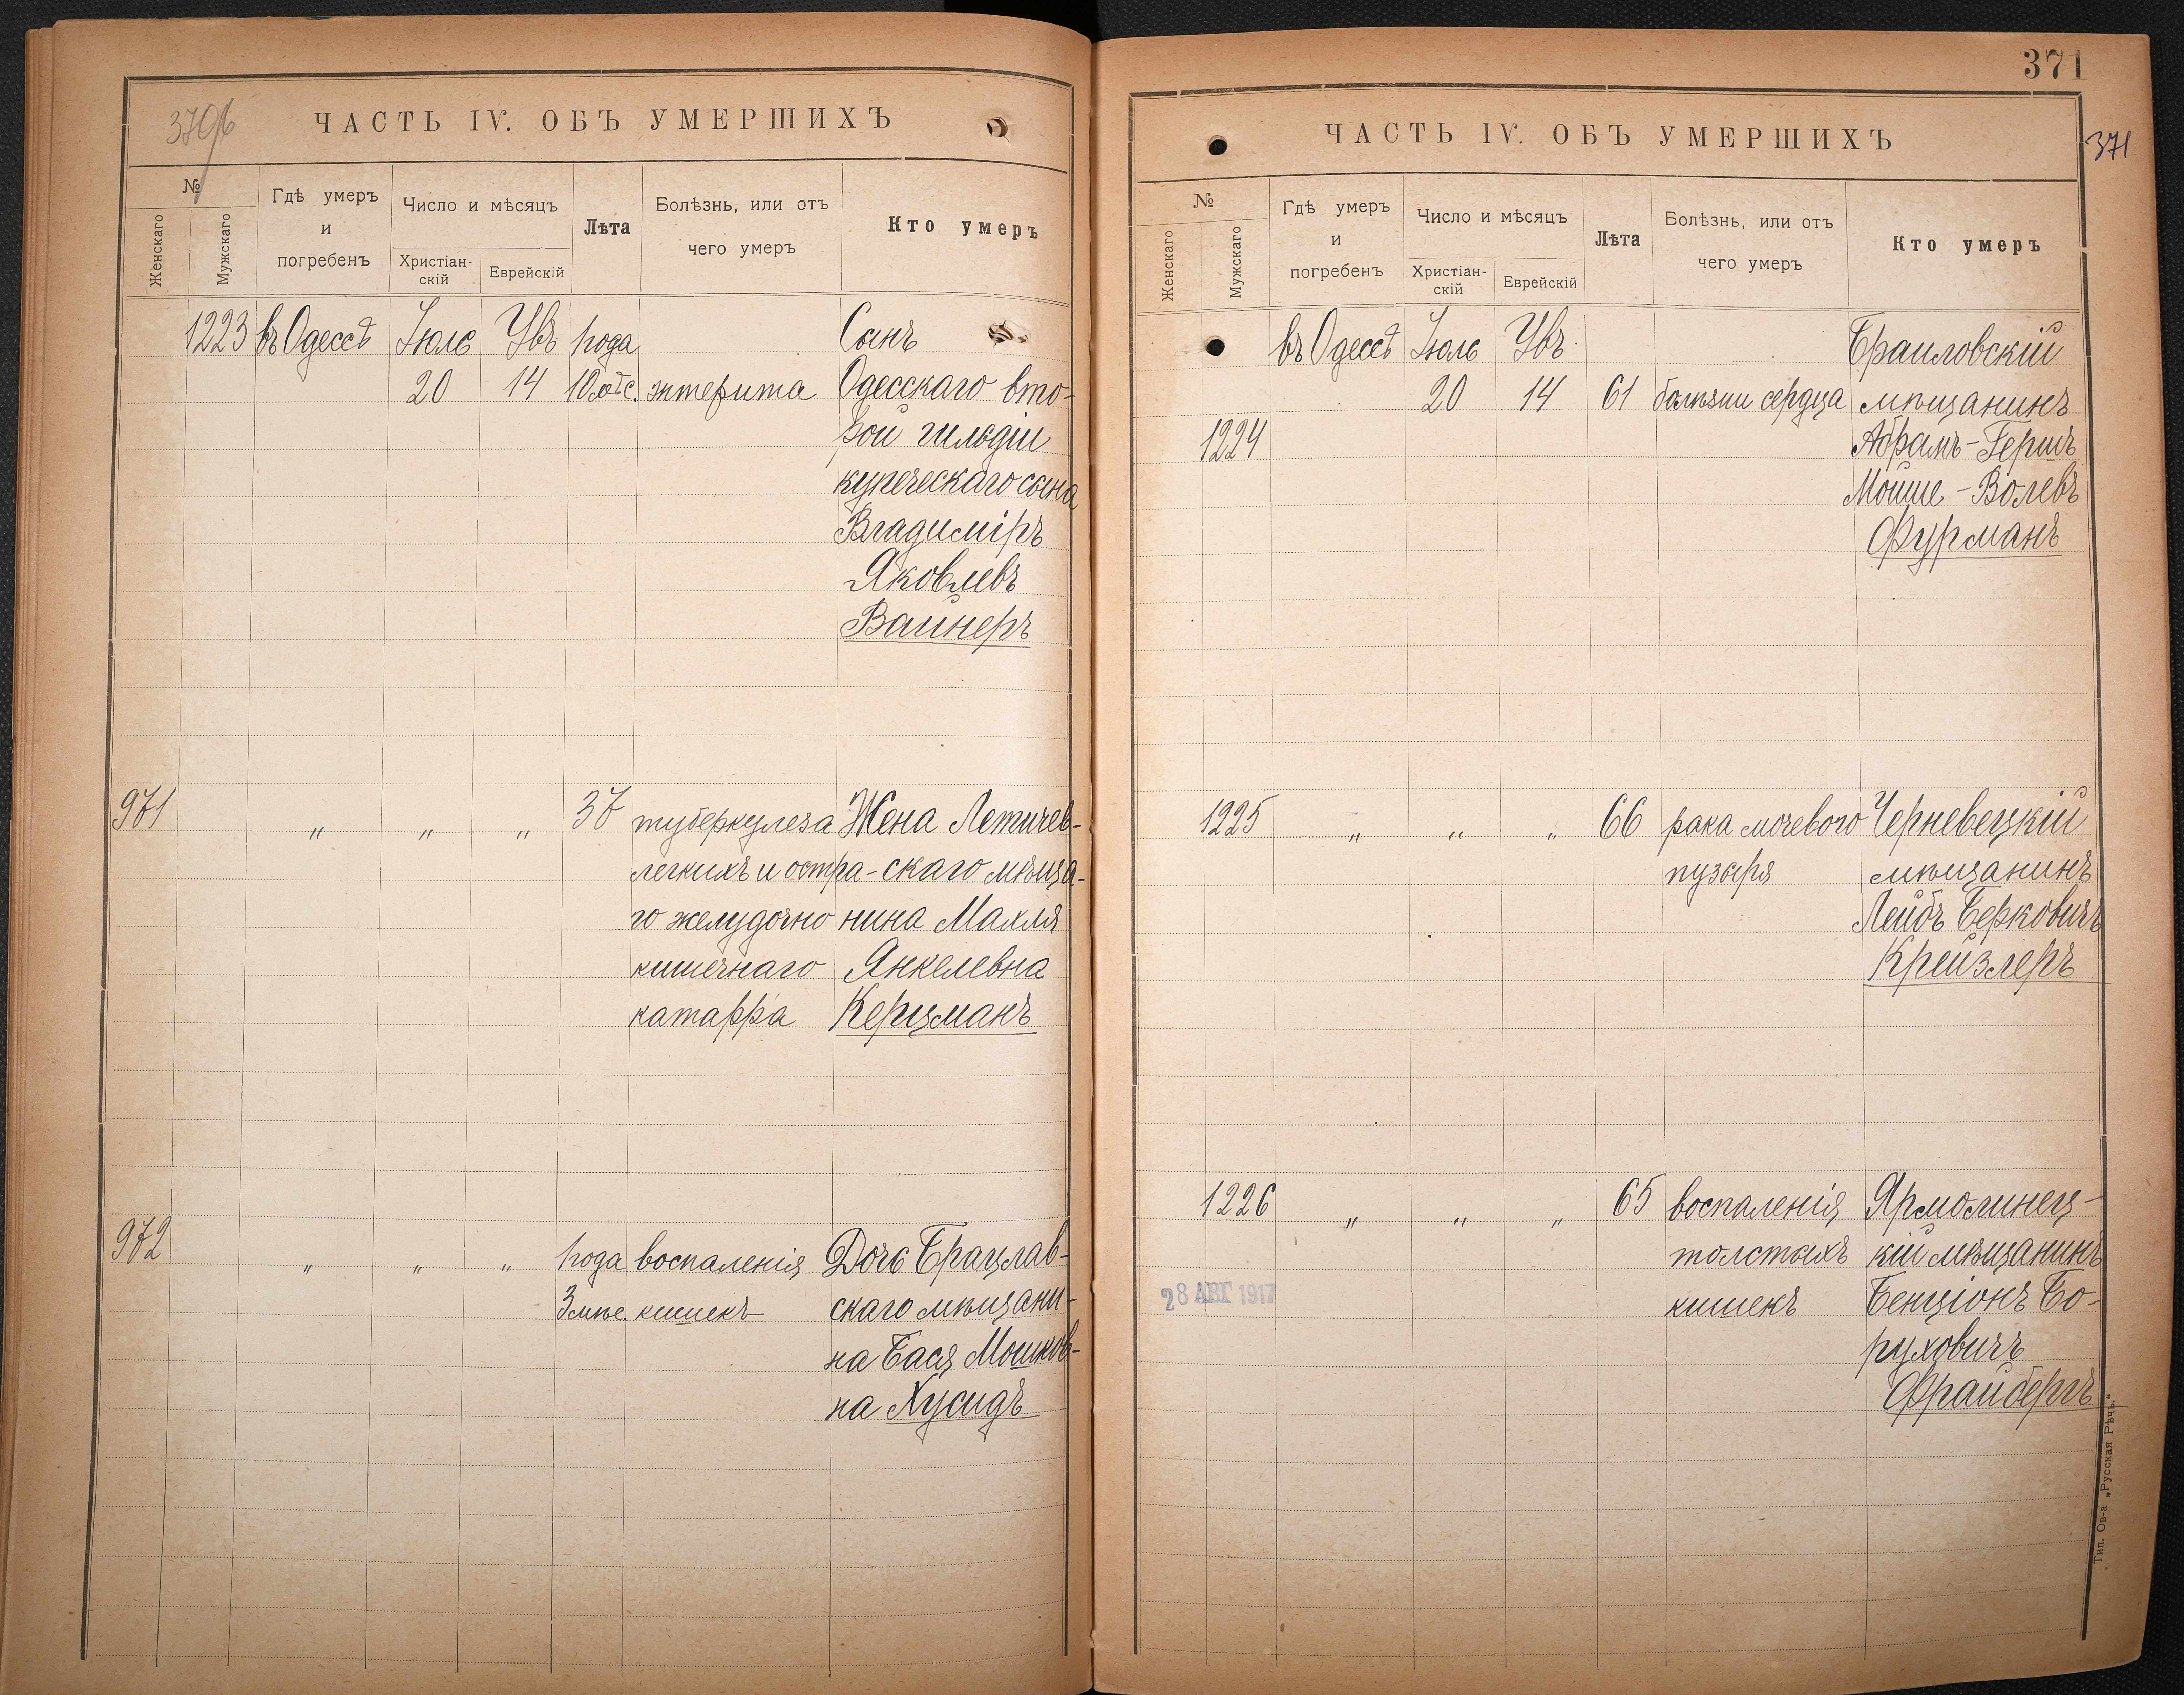 370/б
ЧАСТЬ IV. ОБЪ УМЕРШИХЪ
№
Женскаго
Мужскаго
Гдѣ умеръ
и
погребенъ
Число и мѣсяцъ
Христіан-
скій
Еврейскій
Лѣта
Болѣзнь, или отъ
чего умеръ
Кто умеръ
1223 въ Одессѣ Іюль Увъ 1 года Сынъ
20 14 10 мѣс. энтерита Одесскаго вто-
рой гильдіи
купеческаго сына
Владиміръ
Яковлевъ
Вайнеръ
971 " " " 37 туберкулеза Жена Летичев-
легкихъ и остра- скаго мѣща-
го желудочно нина Махля
кишечнаго Янкелевна
катарра Керцманъ
972 " " " 1 года воспаленія Дочь Брацлав-
3 мѣс. кишекъ скаго мѣщани-
на Бася Мошков-
на Хусидъ
371
371
ЧАСТЬ IV. ОБЪ УМЕРШИХЪ
№
Женскаго
Мужскаго
Гдѣ умеръ
и
погребенъ
Число и мѣсяцъ
Христіан-
скій
Еврейскій
Лѣта
Болѣзнь, или отъ
чего умеръ
Кто умеръ
въ Одессѣ Іюль Увъ. Браиловскій
20 14 61 болѣзни сердца мѣщанинъ
1224 Абрамъ-Гершъ
Мойше-Волевъ
Фурманъ
1225 " " " 66 рака мочевого Черневецкій
пузыря мѣщанинъ
Лейбъ Берковичъ
Крейзлеръ
1226 " " " 65 воспаленія Ярмолинец-
толстыхъ кій мѣщанинъ
28 АВГ 1917 кишекъ Бенціонъ Бо-
руховичъ
Фрайбергъ
Тип. Ов-а „Русская Рѣчь“